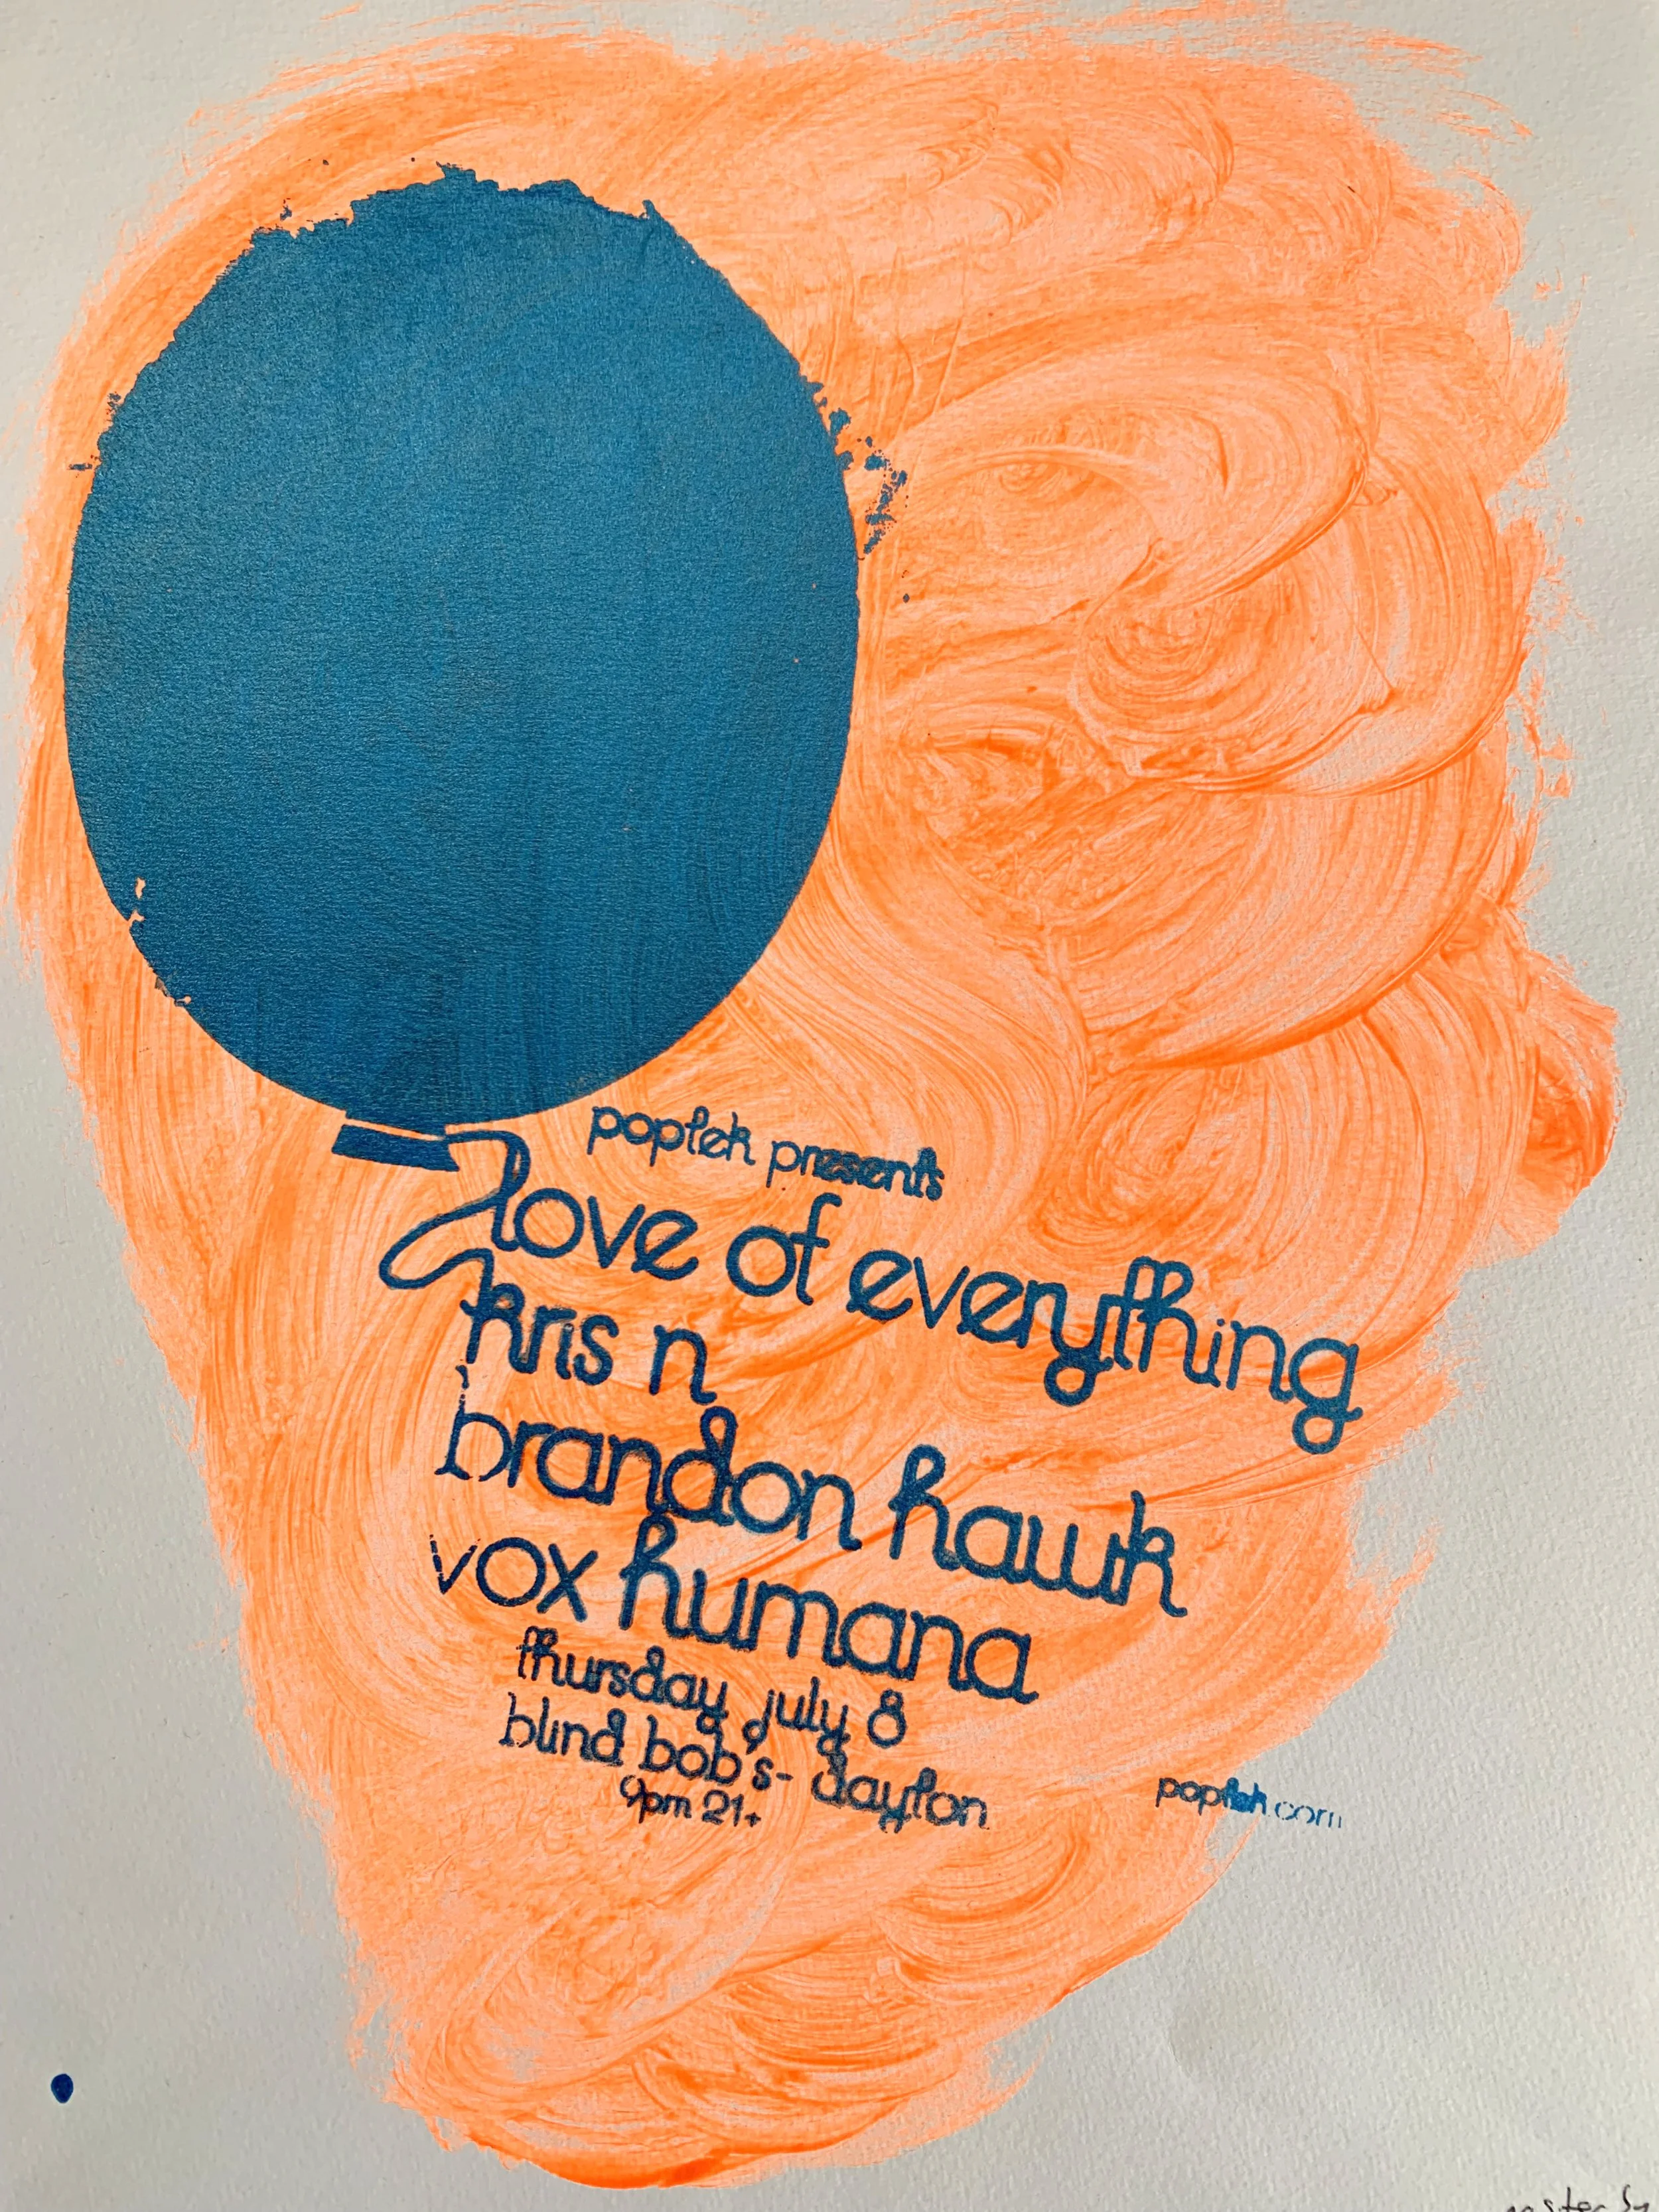 poptek presents
love of everything
kris n
brandon hawk
vox humana
thursday july 8
blind bob's - dayton
9pm 21+
poptek.com